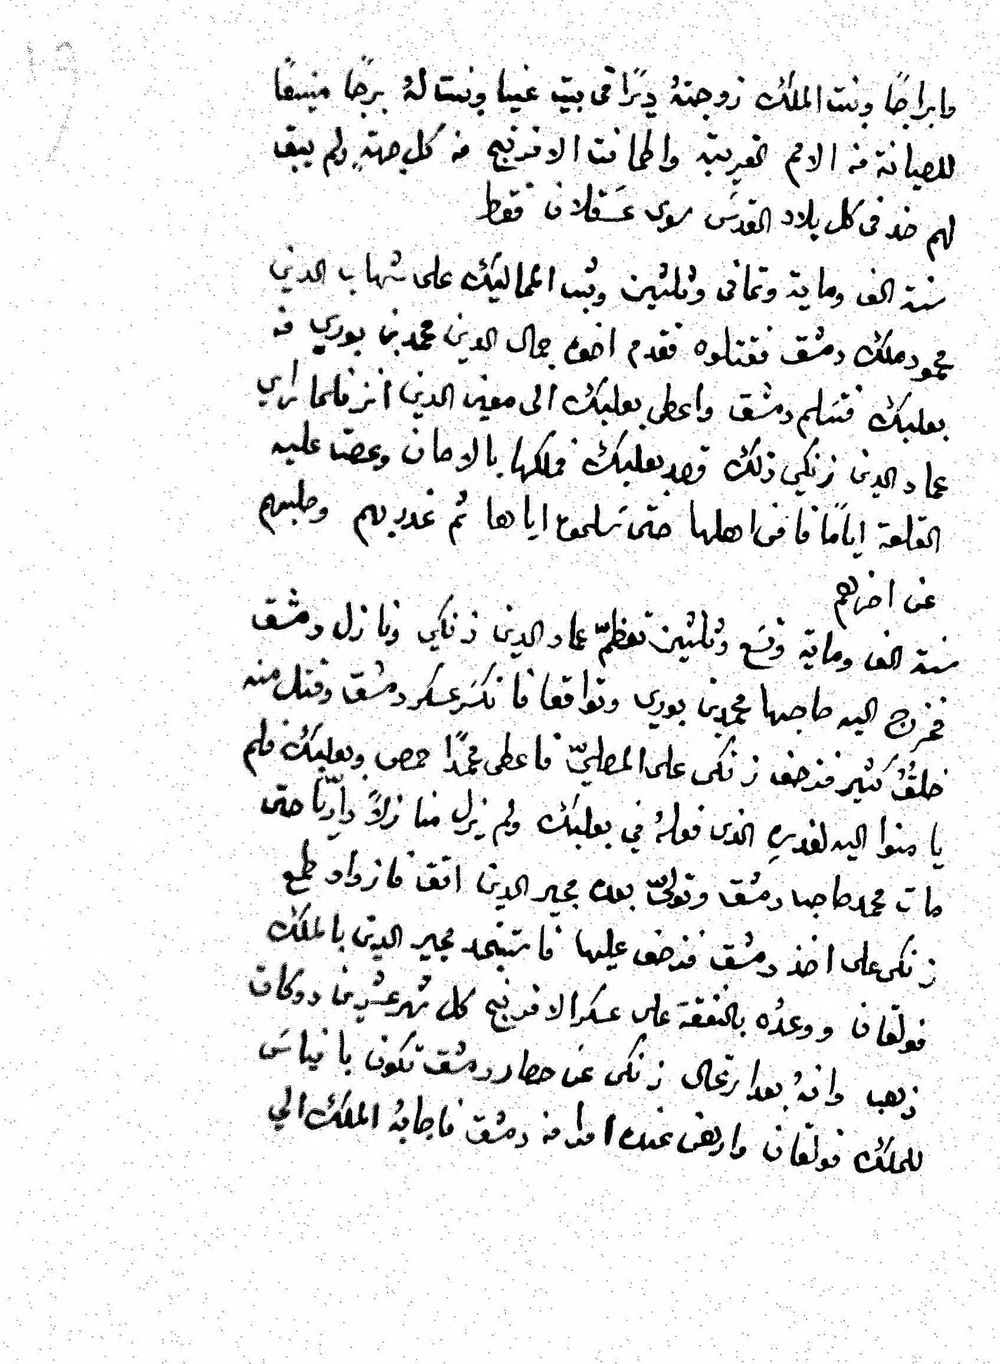 وابراجًا وبنت الملكة زوجتهُ ديرًا في بيت عنيا وبنت لهُ برجًا منيعًا
للصيانة من الامم الغريبة واطمانت الافرنج من كل جهةٍ ولم يبق
لهم ضد في كل بلاد القدس سوى عسقلان فقط
سنة الف وماية وثماني وثلثين وثب المماليك على شهاب الدين
محمود ملك دمشق فقتلوه فقدم اخوه جمال الدين محمد بن بوري من
بعلبك فتسلم دمشق واعطى بعلبك الى معين الدين انز فلما راي
عماد الدين زنكي ذلك قصد بعلبك فملكها بالامان وعصت عليه
القلعة ايامًا فافنى اهلها حتى سلموه اياها ثم غدر بهم وصلبهم
عن اخرهم
سنة الف وماية وتسع وثلثين تعظمّ عماد الدين زنكي ونازل دمشق
فخرج اليه صاحبها محمد بن بوري وتواقعا فانكسر عسكر دمشق وقتل منه
خلقُ كثير فزحف زنكي على المصليّ فاعطى محمدًا حمص وبعلبك فلم
يامنوا اليه لغدرهِ الذي فعلهُ في بعلبك ولم يزل منازلاً داريّا حتى
مات محمد صاحب دمشق وتولىّ بعده مجير الدين اتق فازداد طمع
زنكي على اخذ دمشق فزحف عليها فاستنجد مجير الدين بالملك
فولقان ووعدُه بالنفقة على عسكر الافرنج كل شهر عشرين دوكات
ذهب وانهُ بعد ارتحال زنكي عن حصار دمشق تكون بانياس
للملك فولقان وارهن عنده من دمشق فاجابهُ الملك الي